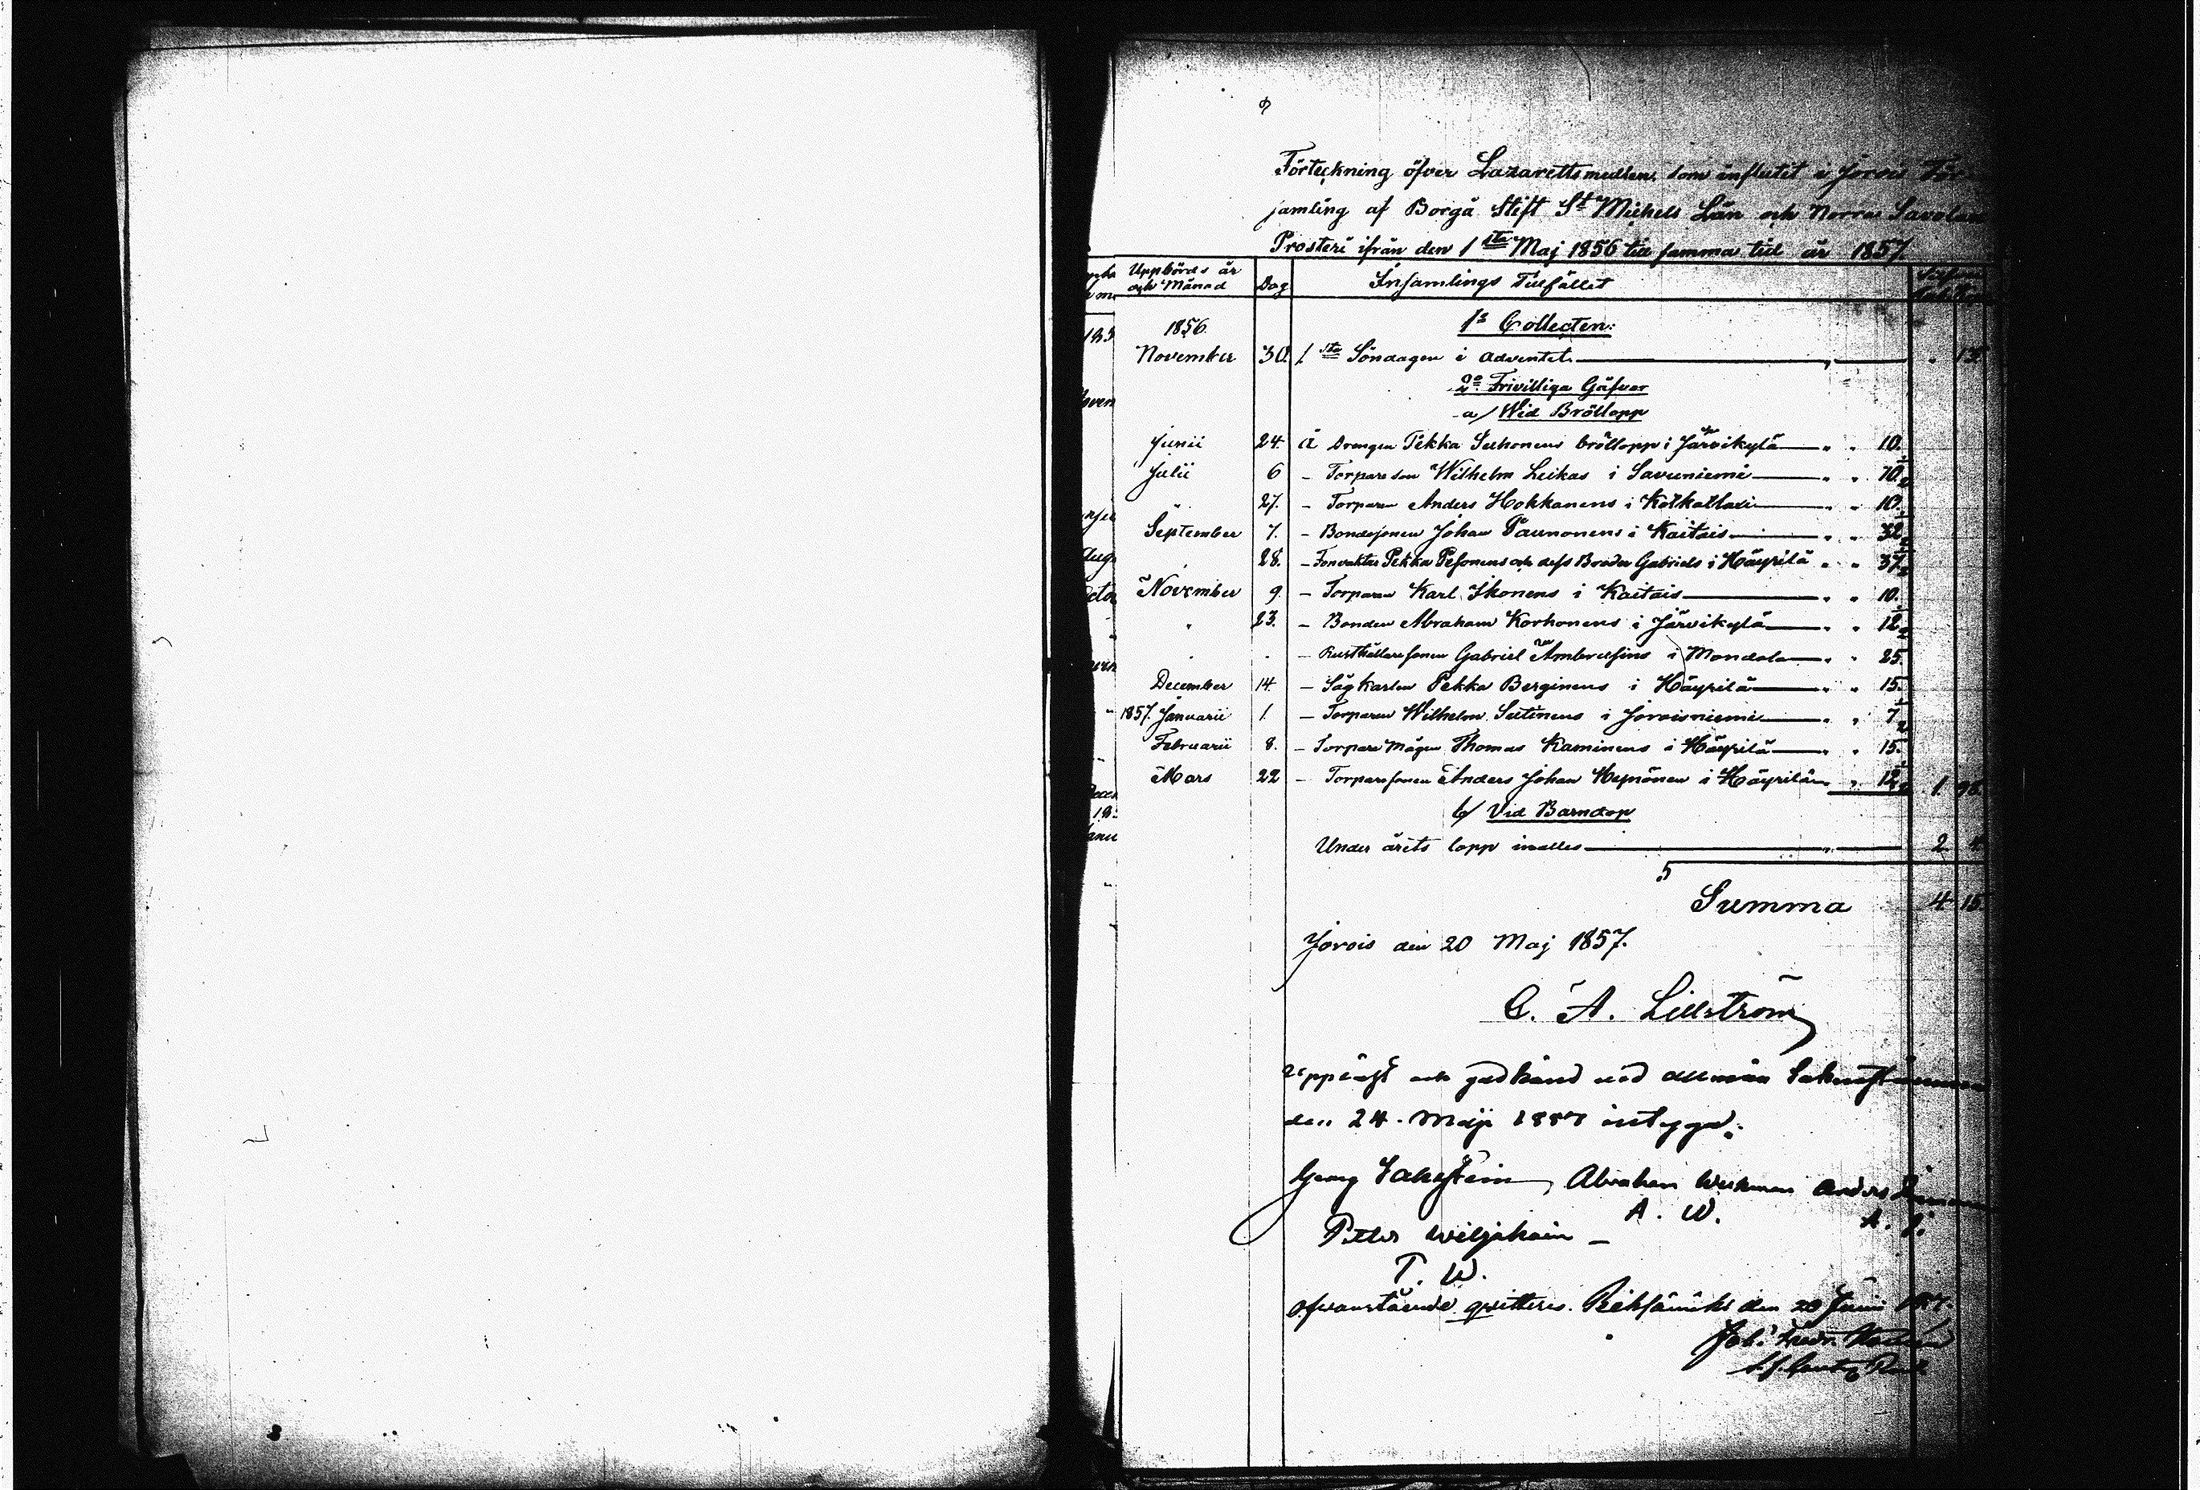 Förteckning öfver Lazarettsmedlen som influtit i Jorois För
samling af Borgå Stift St Michels Län och Norra Savolax
Prosteri ifrån den 1sta Maj 1856 till samma tid år 1857.
Uppbörds år och Månad Dag Insamlings Tillfället
1856. 1o Collecten:
November 30. 1sta Söndagen i Adventet " 13
2o Frivilliga Gåfvor
a/ Wid Bröllopp
Junii 24. Å Drengen Pekka Suhonens bröllopp i Järvikylä " " 10.
Julii 6 – Torpareson Wilhelm Leikas i Savuniemi " " 10 1/2
" 27. – Torparen Anders Hokkanens i Kotkatlax " " 10.
September 7. – Bondesonen Johan Paunonens i Kaitais " " 32 1/2
" 28. – Pekka Pesonens och dess Broder Gabriels i Häyrilä " " 37 1/2
November 9. – Torparen Karl Ikonens i Kaitais " " 10.
" 23. – Bonden Abraham Korhonens i Järvikylä " " 12 1/2
" " – Rusthållaresonen Gabriel Ambrusins i Mondola " " 25.
December 14. – Sågkarlen Pekka Berginens i Häyrilä " " 15.
1857. Januarii 1. – Torparen Wilhelm Sutinens i Joroisniemi " " 7 1/2
Februarii 8. – Torpare Mågen Thomas Kaminens i Häyrilä " " 15.
Mars 22 – Torparesonen Anders Johan Hypönen i Häyrilä " " 12 1/2 1. 98.
b/ Vid Barndop
Under årets lopp inalles " 2 4.
Summa 4 15.
Jorois den 20 Maj 1857.
C. A. Lillström
Uppläst och godkänd vid allmän Sockenstämma
den 24. Maji 1857 intyga:
Georg Abraham Weckman Anders
A. W. A.
Petter Wiljakain
P. W.
Ofvanstående qvitteras. den 20 Junii 1857.
Joh. Fredr.